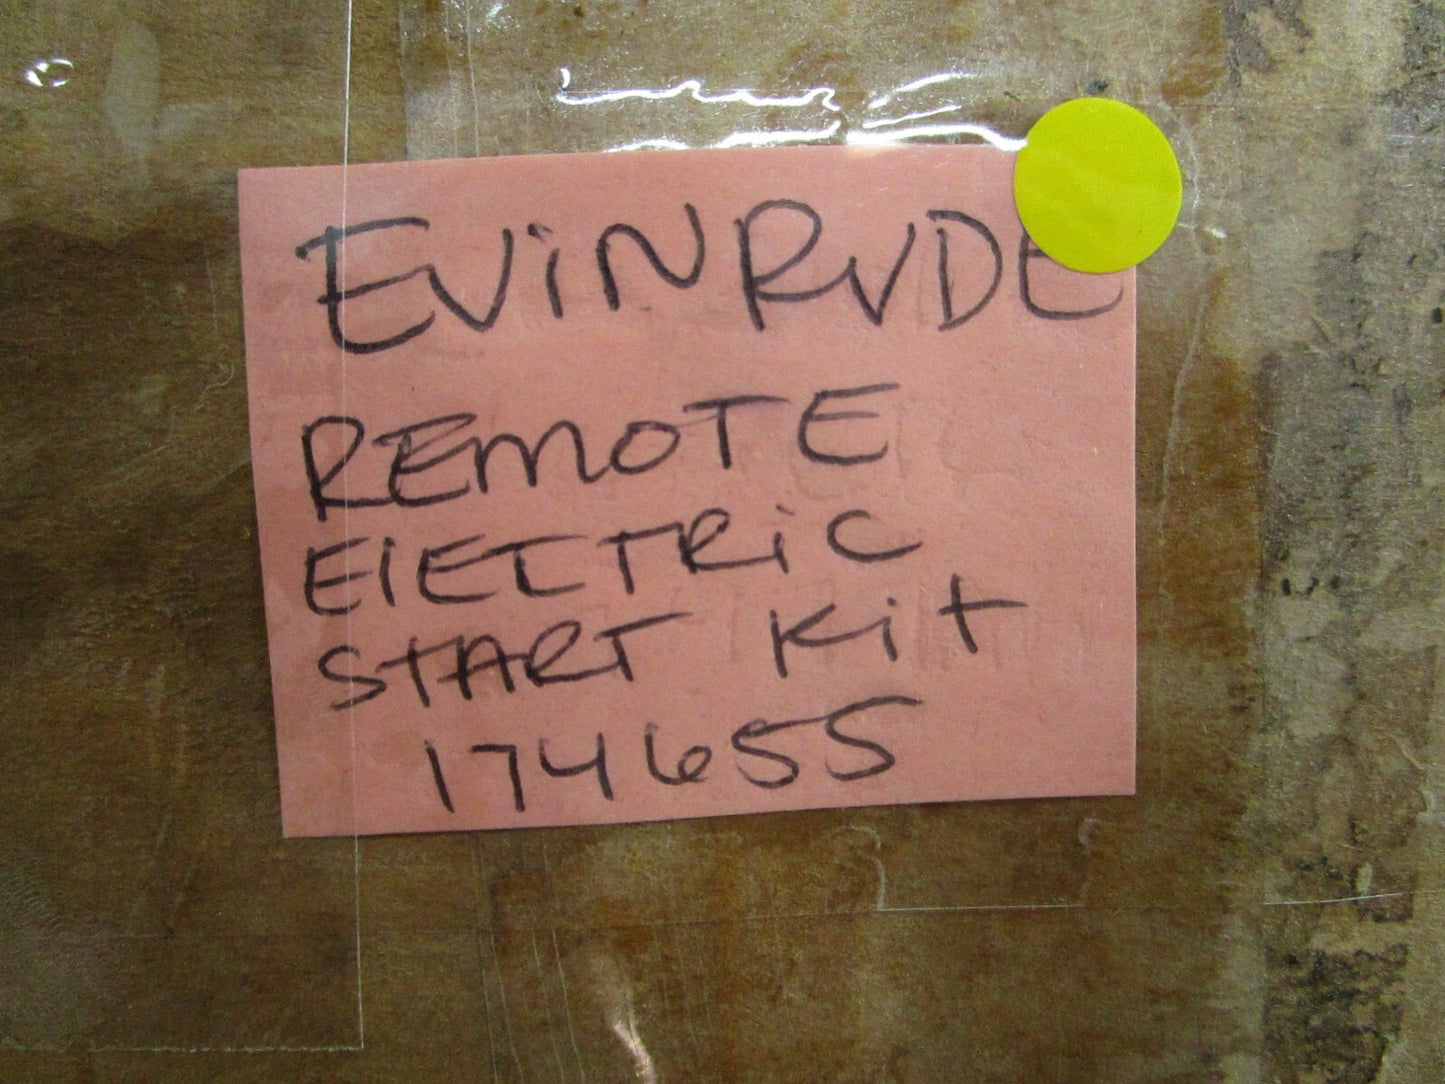 EVINRUDE
REMOTE
ElECTRIC
START Kit
174655